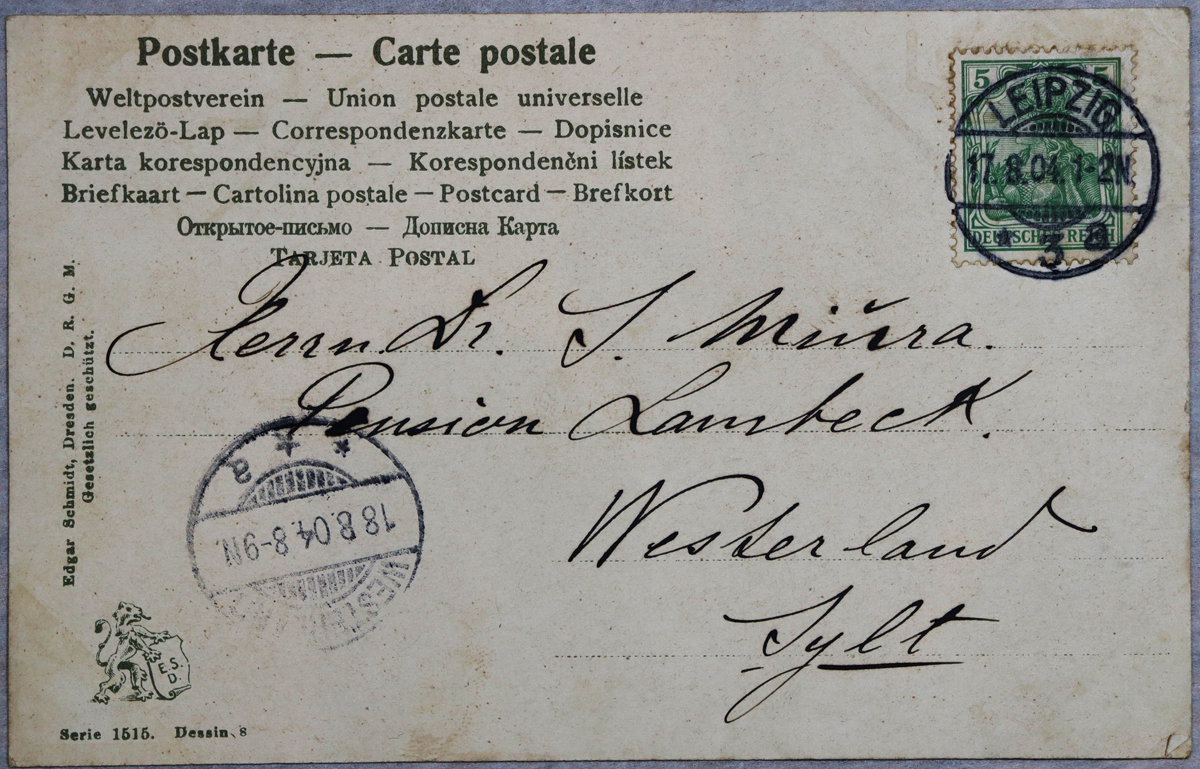 Postkarte — Carte postale
Weltpostverein — Union postale universelle
Levelező-Lap — Correspondenzkarte — Dopisnice
Karta korespondencyjna — Korespondenčni lístek
Briefkaart — Cartolina postale — Postcard — Brefkort
Открытое-письмо — Дописна Карта
TARJETA POSTAL
5 5
DEUTSCHES REICH
LEIPZIG
17.8.04. 1-2N.
* 3 a
Herrn Dr. S. Miŭra.
Pension Lambeck.
Westerland
Sylt
a
18.8.04. 8-9N.
Edgar Schmidt, Dresden. D. R. G. M.
Gesetzlich geschützt.
E.S.D.
Serie 1515. Dessin. 8